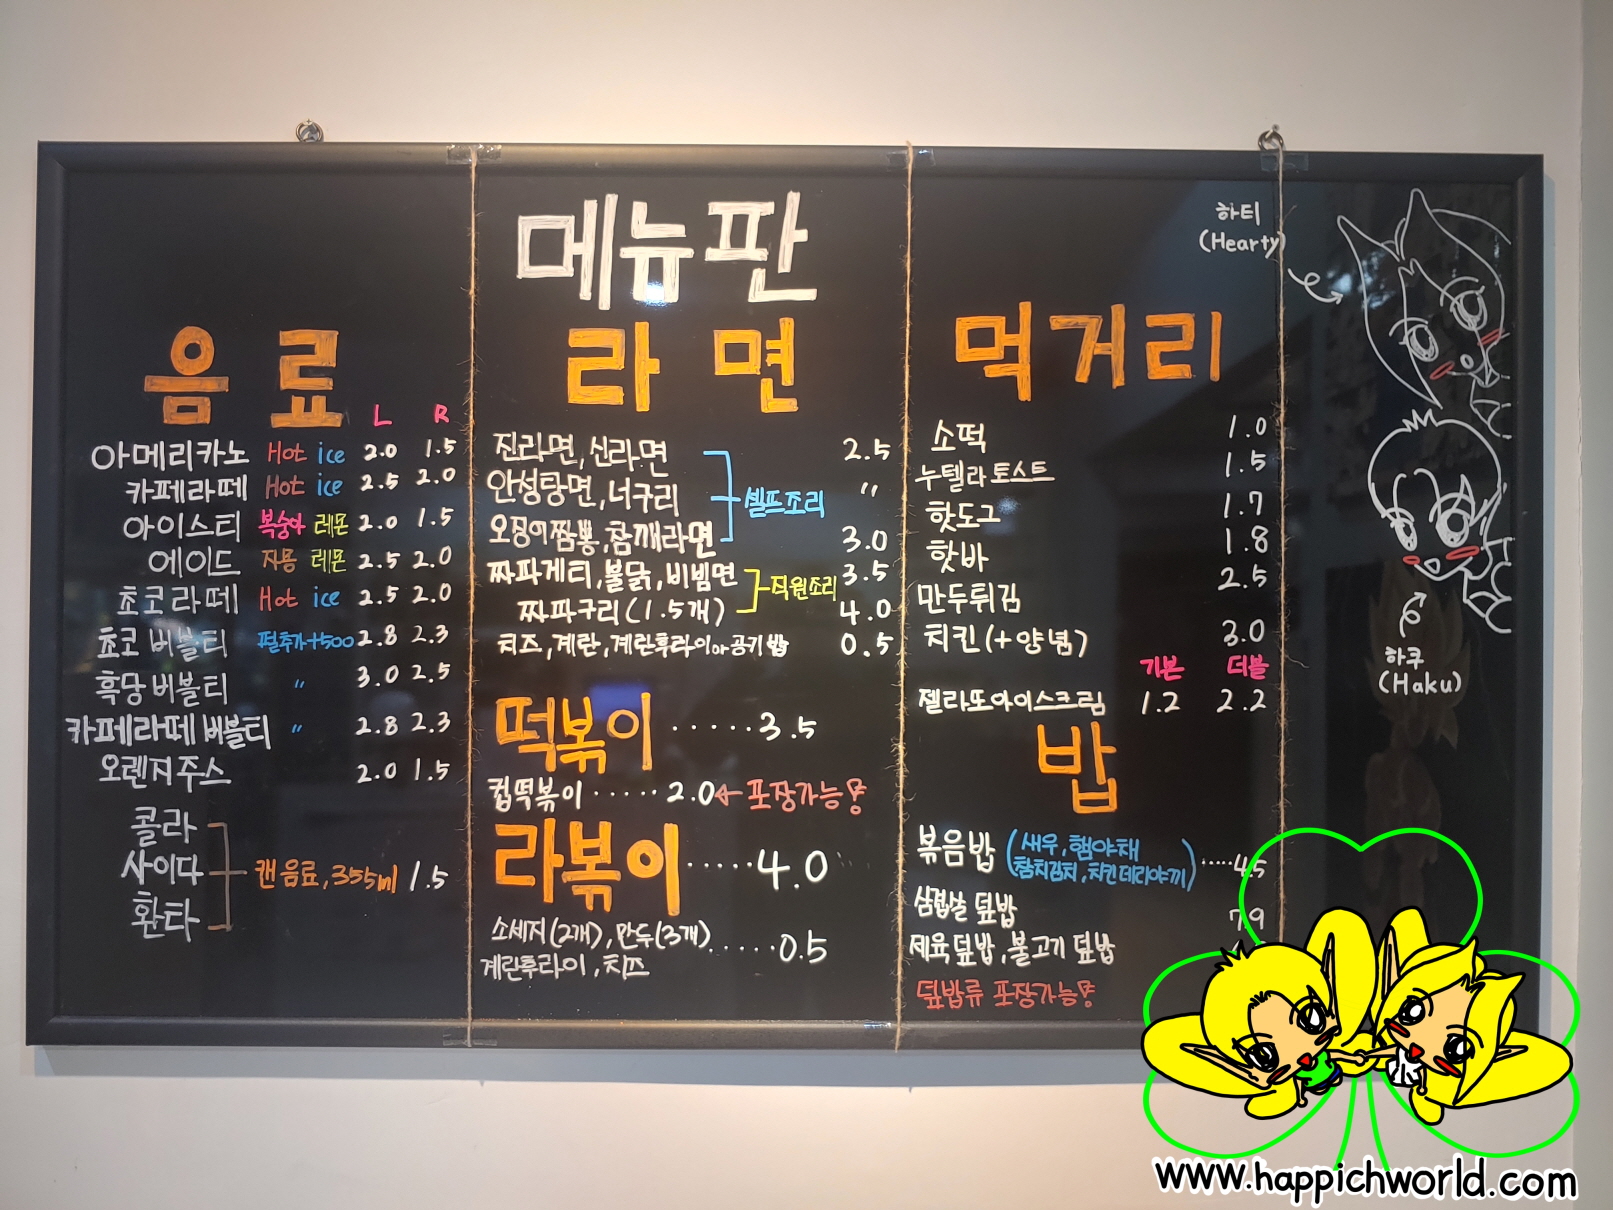 메뉴판
음료
L R
아메리카노 Hot ice 2.0 1.5
카페라떼 Hot ice 2.5 2.0
아이스티 복숭아 레몬 2.0 1.5
에이드 자몽 레몬 2.5 2.0
초코라떼 Hot ice 2.5 2.0
초코버블티 펄추가+500 2.8 2.3
흑당버블티 〃 3.0 2.5
카페라떼버블티 〃 2.8 2.3
오렌지주스 2.0 1.5
콜라
사이다 캔음료, 355ml 1.5
환타
라면
진라면, 신라면 2.5
안성탕면, 너구리 셀프조리 〃
오징어짬뽕, 참깨라면 3.0
짜파게티, 불닭, 비빔면 직원조리 3.5
짜파구리(1.5개) 4.0
치즈, 계란, 계란후라이or공기밥 0.5
떡볶이 ····· 3.5
컵떡볶이 ····· 2.0 ← 포장가능!
라볶이 ····· 4.0
소세지(2개), 만두(3개) ····· 0.5
계란후라이, 치즈
먹거리
소떡 1.0
누텔라토스트 1.5
핫도그 1.7
핫바 1.8
만두튀김 2.5
치킨(+양념) 3.0
기본 더블
젤라또아이스크림 1.2 2.2
밥
볶음밥 (새우, 햄야채 ····· 4.5
참치김치, 치킨데리야끼)
삼겹살 덮밥
제육덮밥, 불고기 덮밥
덮밥류 포장가능!
하티
(Hearty)
하쿠
(Haku)
www.happichworld.com